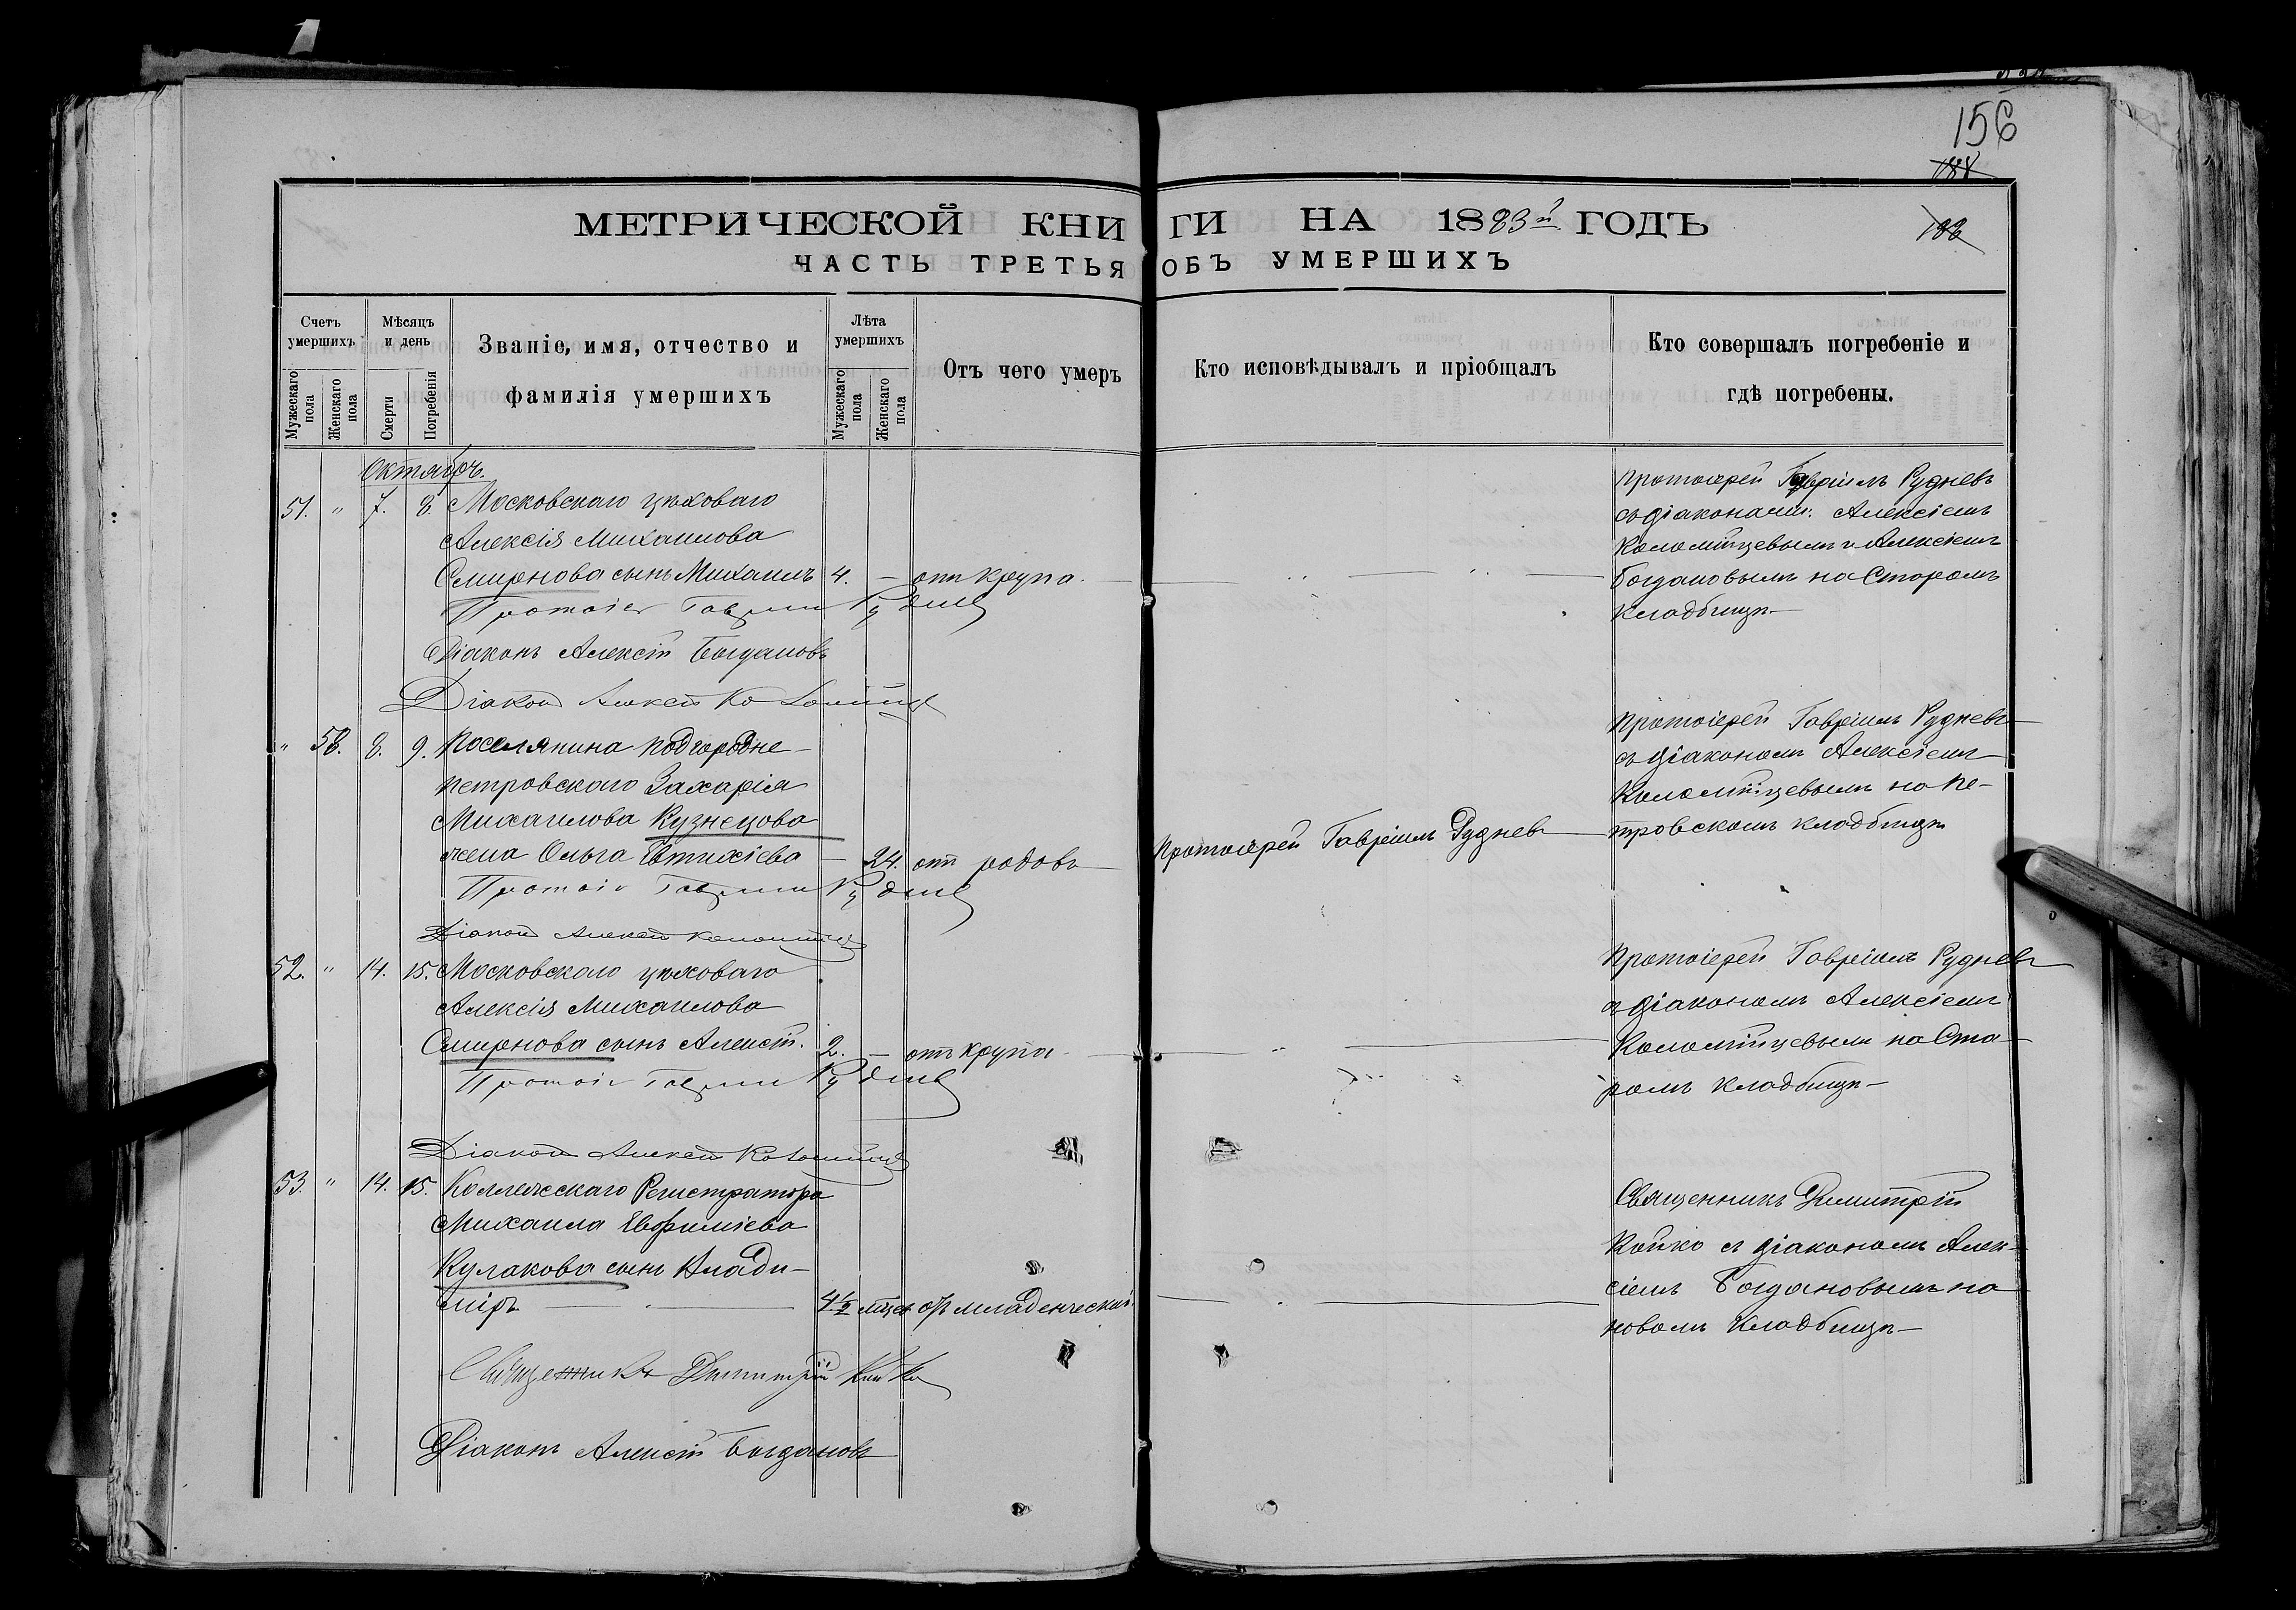 156
188
МЕТРИЧЕСКОЙ КНИГИ НА 1883й ГОДЪ
ЧАСТЬ ТРЕТЬЯ ОБЪ УМЕРШИХЪ
Счетъ умершихъ
Мужескаго пола
Женскаго пола
Мѣсяцъ и день
Смерти
Погребенія
Званіе, имя, отчество и
фамилія умершихъ
Лѣта умершихъ
Мужескаго пола
Женскаго пола
Отъ чего умеръ
Кто исповѣдывалъ и пріобщалъ
Кто совершалъ погребеніе и
гдѣ погребены.
Октябрь.
51. " 7. 8. Московскаго цѣховаго
Алексія Михаилова
Смирнова сынъ Михаилъ 4. — отъ крупа.
Протоіерей Гавріилъ Рудневъ
Діаконъ Алексій Богдановъ
Діаконъ Алексей Коломійцевъ
Протоіерей Гавріилъ Рудневъ
съ діаконами: Алексіемъ
Коломійцевымъ и Алексіемъ
Богдановымъ на Старомъ
кладбищѣ—
" 58. 8. 9. Поселянина Подгородне-
петровскаго Захарія
Михаилова Кузнецова
жена Ольга Евтихіева — 24. отъ родовъ
Протоіерей Гавріилъ Рудневъ
Діаконъ Алексей Коломійцевъ
Протоіерей Гавріилъ Рудневъ
Протоіерей Гавріилъ Рудневъ
съ діакономъ Алексіемъ
Коломійцевымъ на Пе-
тровскомъ кладбищѣ
52. " 14. 15. Московскаго цѣховаго
Алексія Михаилова
Смирнова сынъ Алексій. 2. — отъ крупа.
Протоіерей Гавріилъ Рудневъ
Діаконъ Алексей Коломійцевъ
Протоіерей Гавріилъ Рудневъ
съ діакономъ Алексіемъ
Коломійцевымъ на Ста-
ромъ кладбищѣ—
53. " 14. 15. Коллежскаго Регистратора
Михаила Евфиміева
Кулакова сынъ Влади-
міръ — 4½ мѣсц. отъ младенческой.
Священникъ Димитрій Койко
Діаконъ Алексій Богдановъ
Священникъ Димитрій
Койко съ діакономъ Алек-
сіемъ Богдановымъ на
новомъ кладбищѣ—